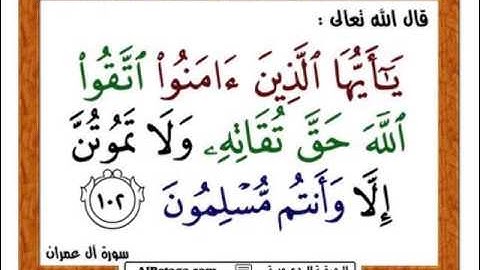 قال الله تعالى :
يَـٰٓأَيُّهَا ٱلَّذِينَ ءَامَنُوا۟ ٱتَّقُوا۟
ٱللَّهَ حَقَّ تُقَاتِهِۦ وَلَا تَمُوتُنَّ
إِلَّا وَأَنتُم مُّسْلِمُونَ ١٠٢
سورة آل عمران